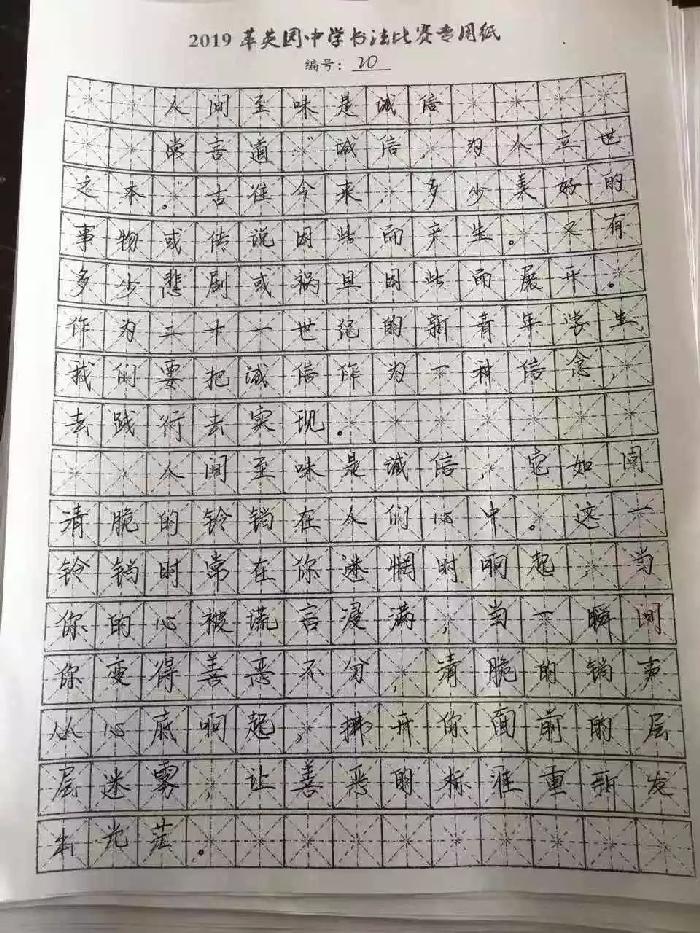 2019 革英园中学书法比赛专用纸
编号：20
人间至味是诚信
常言道：“诚信，为人立世
之本。古往今来，多少美好的
事物或传说因此而产生。又有
多少悲剧或祸患因此而展开。
作为二十一世纪的新青年学生
我们要把诚信作为一种信念，
去践行去实现。
人间至味是诚信，宛如阔
清脆的铃铛在人们心中。这一
铃铛时常在你迷惘时响起，当
你的心被谎言浸满，当一瞬间
你变得善恶不分，清脆的铛声
从心底响起，拂开你面前的层
层迷雾，让善恶的标准重新发
出光茫。